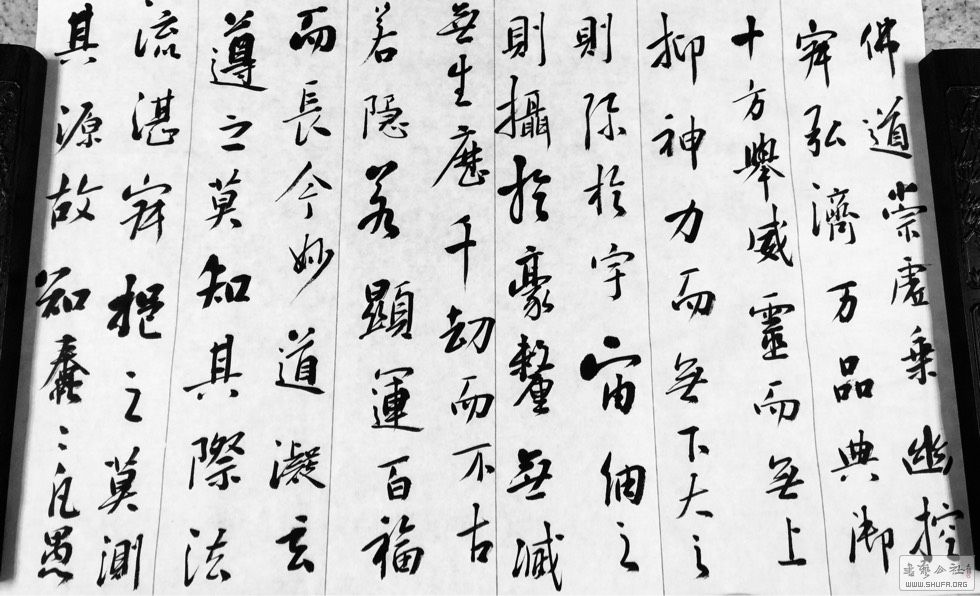 佛道崇虚乘幽控
寂弘濟万品典御
十方舉威靈而無上
抑神力而無下大之
則弥於宇宙細之
則攝於豪釐無滅
無生歷千劫而不古
若隱若顯運百福
而長今妙道凝玄
遵之莫知其際法
流湛寂挹之莫測
其源故知蠢々凡愚
書藝公社
WWW.SHUFA.ORG